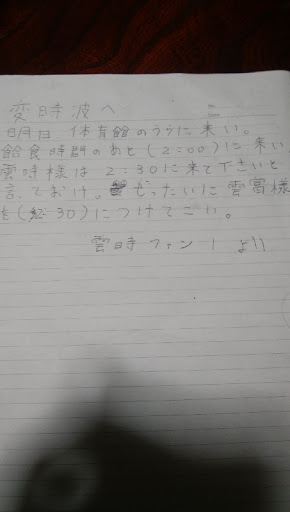 変時波へ
明日 体育館のうらに来い。
給食時間のあと(2:00)に来い
雲時様は 2:30に来て下さいと
言っておけ。ぜったいに雲富様
を(2:30)につけてこい。
雲時ファン1 より